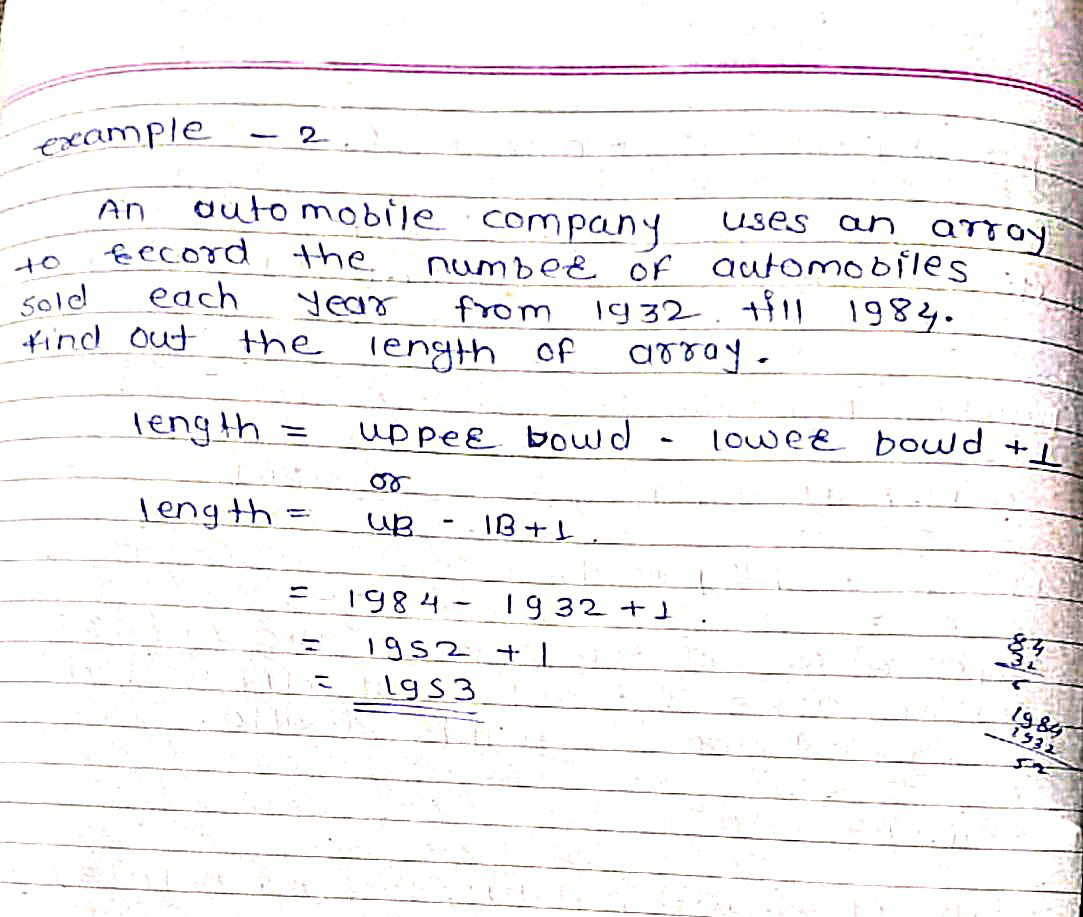 example - 2.
An automobile company uses an array
to record the number of automobiles
sold each year from 1932 till 1984.
find out the length of array.
length = upper bound - lower bound + 1
or
length = UB - lB + 1.
= 1984 - 1932 + 1.
= 1952 + 1
= 1953
84
32
1984
1932
52